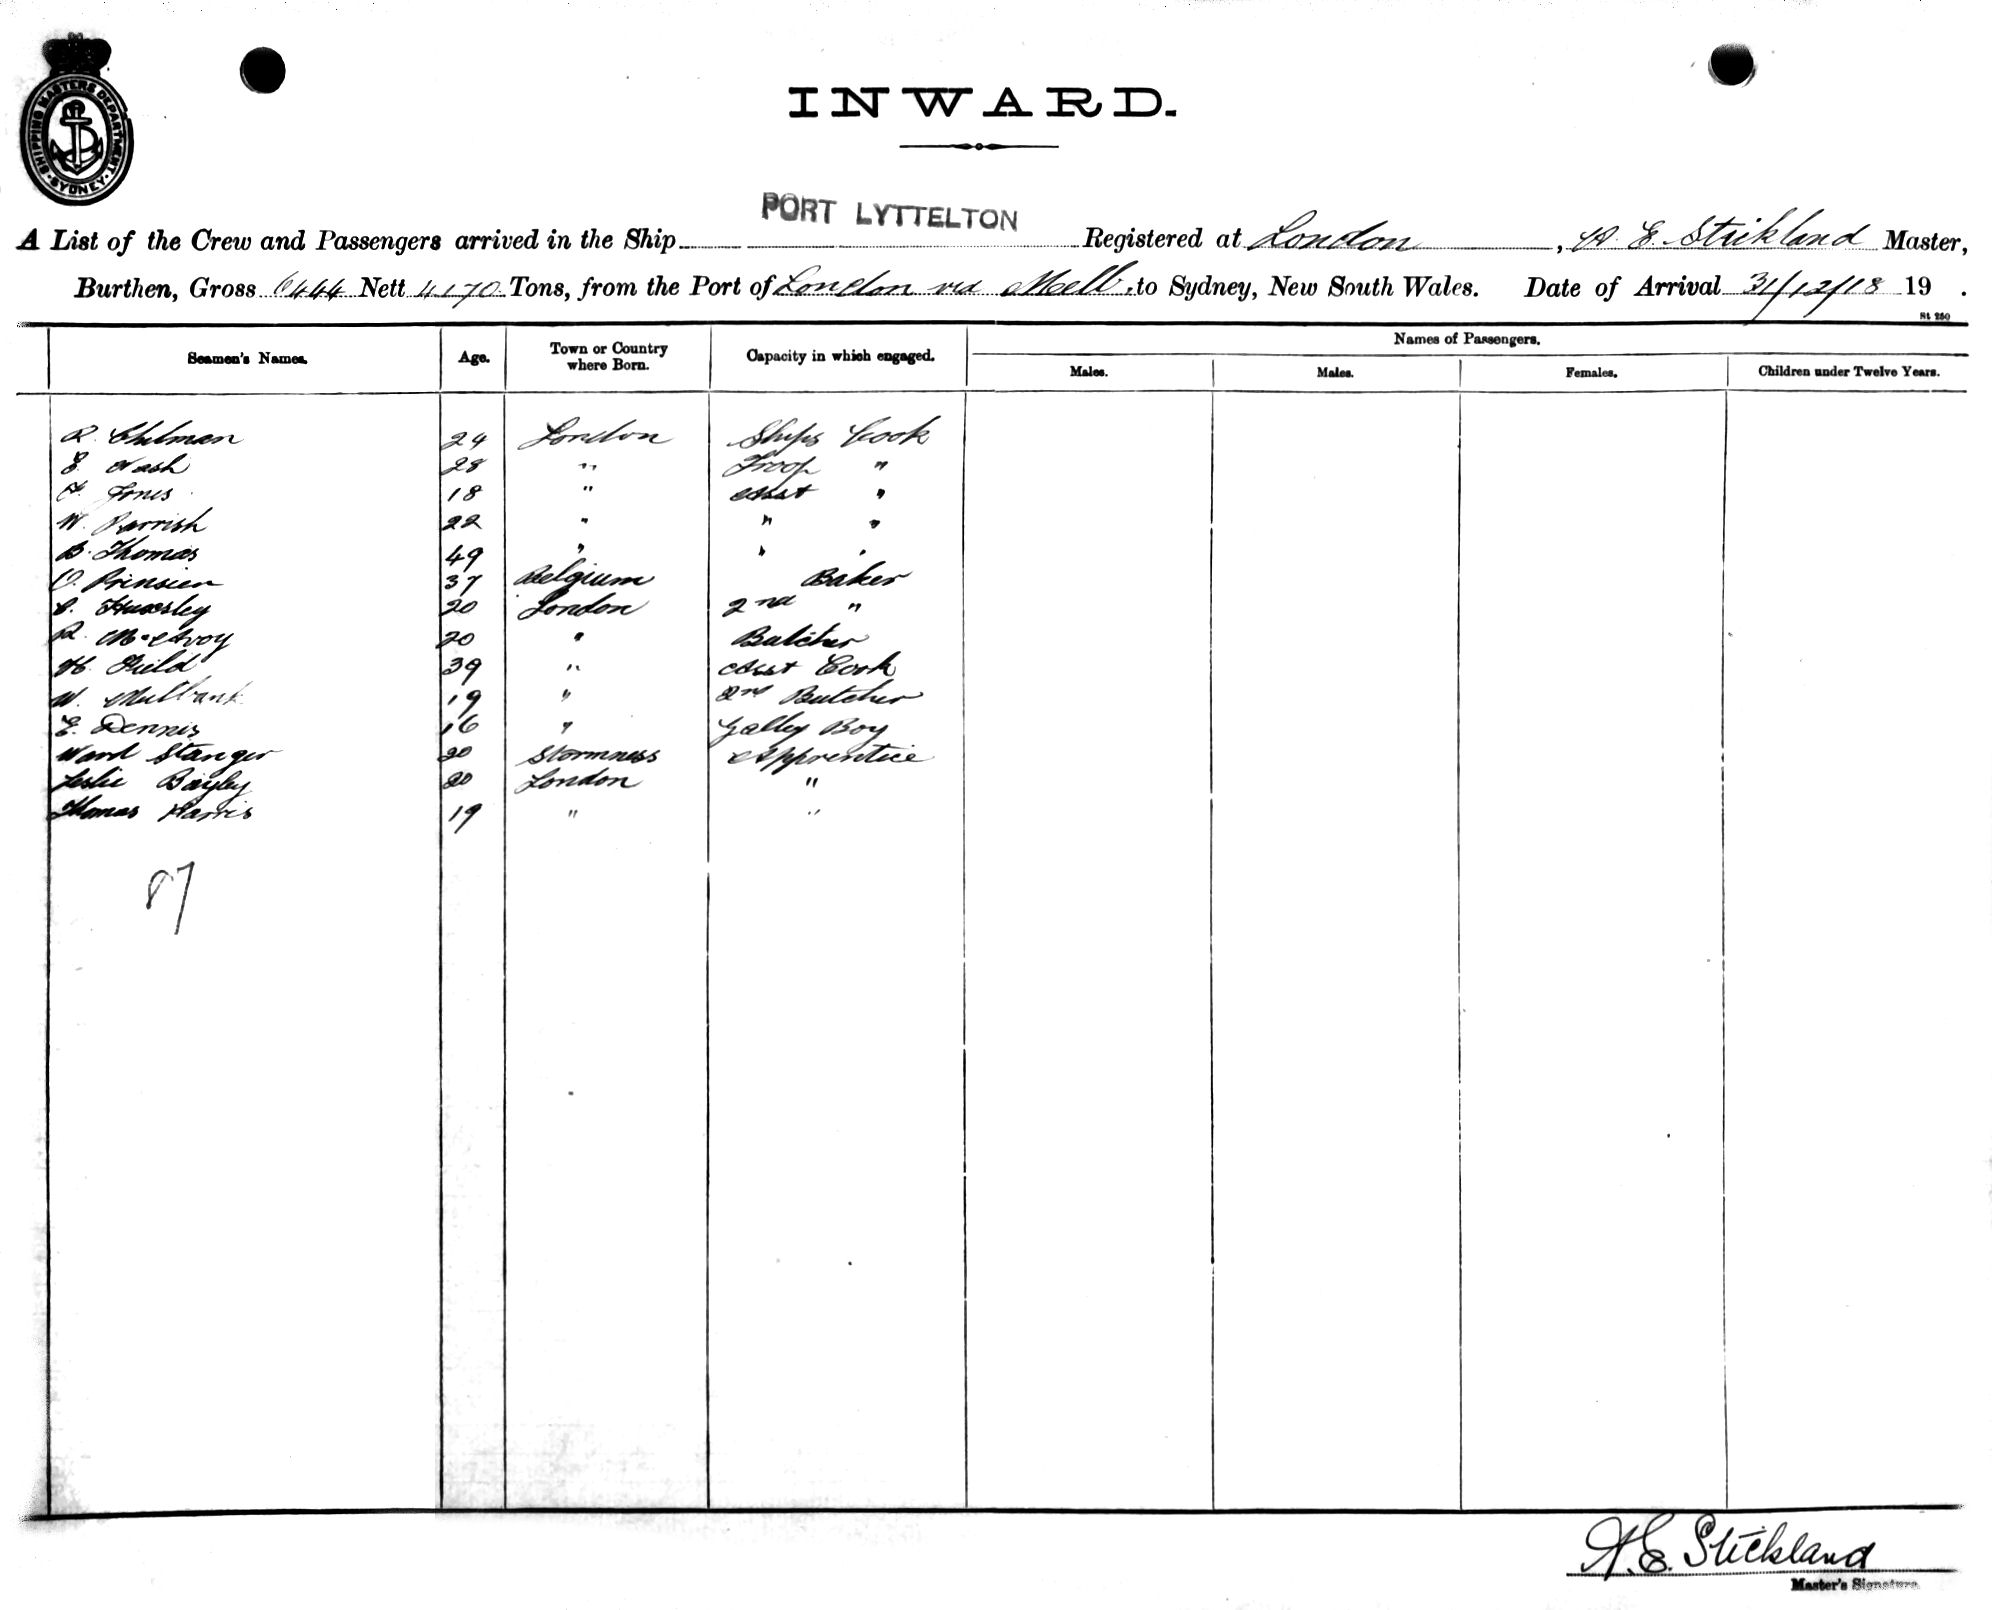 SHIPPING MASTERS DEPARTMENT. SYDNEY.
INWARD.
PORT LYTTELTON
A List of the Crew and Passengers arrived in the Ship Registered at London, E. Strikland Master,
Burthen, Gross 6444 Nett 4170 Tons, from the Port of London via Melb. to Sydney, New South Wales. Date of Arrival 31/12/18 19 .
St 250
Seamen's Names. Age. Town or Country where Born. Capacity in which engaged. Names of Passengers.
Males. Males. Females. Children under Twelve Years.
R. Chilman 24 London Ships Cook
E. Nash 28 " Troop "
F. Jones 18 " Asst "
W. Parrish 22 " " "
B. Thomas 49 " " "
O. Prinsien 37 Belgium Baker
C. 20 London 2nd "
R. McAvoy 20 " Butcher
H. Field 39 " Asst Cook
W. Millbank 19 " 2nd Butcher
E. Dennis 16 " Galley Boy
Ward Stanger 20 Stormness Apprentice
Leslie Bayley 20 London "
Thomas Harris 19 " "
87
E. Stickland
Master's Signature.